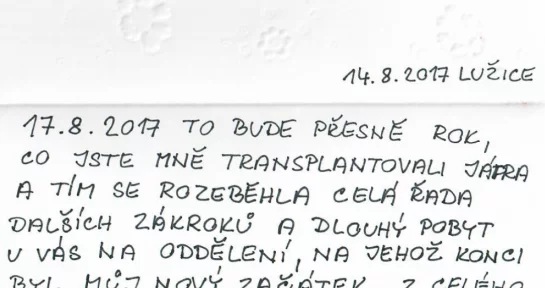 14.8.2017 LUŽICE
17.8.2017 TO BUDE PŘESNĚ ROK,
CO JSTE MNĚ TRANSPLANTOVALI JÁTRA
A TÍM SE ROZEBĚHLA CELÁ ŘADA
DALŠÍCH ZÁKROKŮ A DLOUHÝ POBYT
U VÁS NA ODDĚLENÍ, NA JEHOŽ KONCI
BYL MŮJ NOVÝ ZAČÁTEK. Z CELÉHO